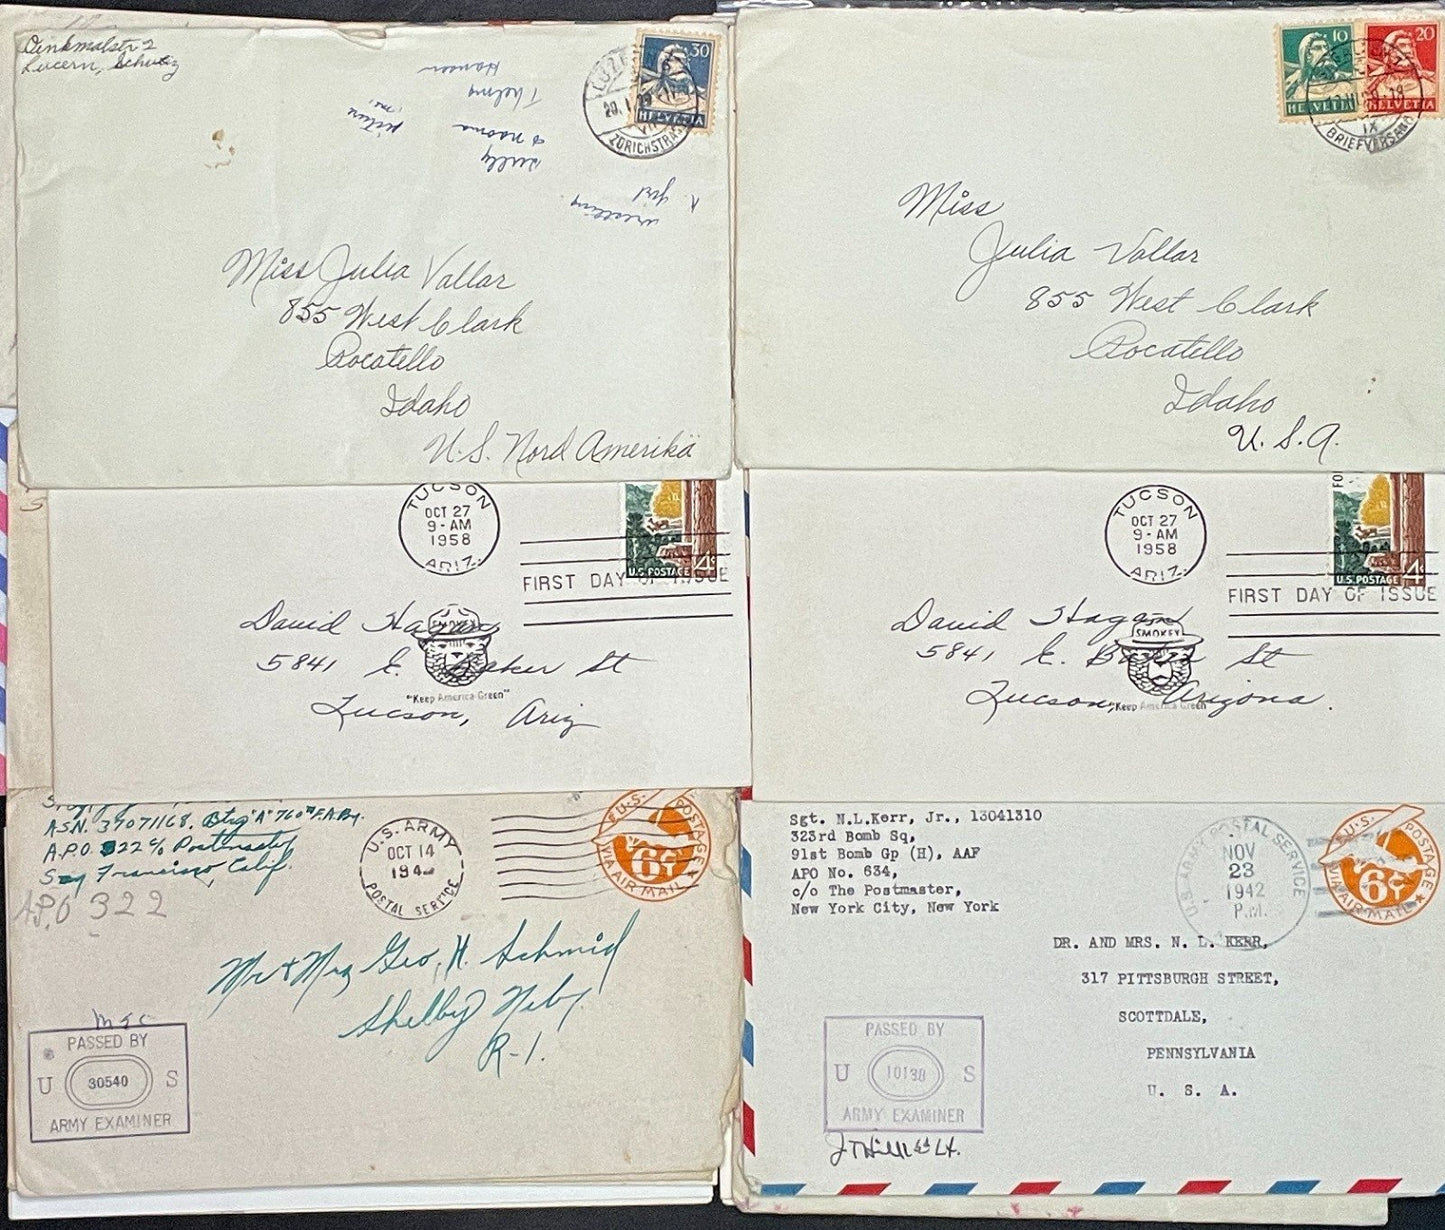 Denkmalstr 2
Lucern, Schweiz
Thelma
Hansen
& naoma
picture
me,
wrestling.
30
HELVETIA
LUZE
20. I. 29.-11
VII
ZÜRICHSTRA
Miss Julia Vallar
855 West Clark
Pocatello
Idaho
U.S. Nord Amerikä
10
HELVETIA
20
HELVETIA
IX
BRIEFVERSAND
Miss
Julia Vallar
855 West Clark
Pocatello
Idaho
U. S. A.
TUCSON
OCT 27
9-AM
1958
ARIZ.
U.S. POSTAGE 4¢
FIRST DAY OF ISSUE
David Hagan
SMOKEY
5841 E. Baker St
"Keep America Green"
Tucson, Ariz
TUCSON
OCT 27
9-AM
1958
ARIZ.
FO
U.S. POSTAGE 4¢
FIRST DAY OF ISSUE
David Hagan
SMOKEY
5841 E. Baker St
Tucson, Arizona.
"Keep America Green"
ASN. 37071168, Btry "A" 760th F.A.Bn.
A.P.O. 322 c/o Postmaster
San Francisco, Calif.
A.P.O 322
U.S. ARMY
OCT 14
194
POSTAL SERVICE
U.S. POSTAGE
6¢
VIA AIR MAIL
Mr & Mrs Geo. H. Schmid
Shelby Nebr.
R-1.
PASSED BY
U 30540 S
ARMY EXAMINER
Sgt. N.L.Kerr, Jr., 13041310
323rd Bomb Sq,
91st Bomb Gp (H), AAF
APO No. 634,
c/o The Postmaster,
New York City, New York
U.S. ARMY POSTAL SERVICE
NOV
23
1942
P.M.
U.S. POSTAGE
6¢
VIA AIR MAIL
DR. AND MRS. N. L. KERR,
317 PITTSBURGH STREET,
SCOTTDALE,
PENNSYLVANIA
U. S. A.
PASSED BY
U 10138 S
ARMY EXAMINER